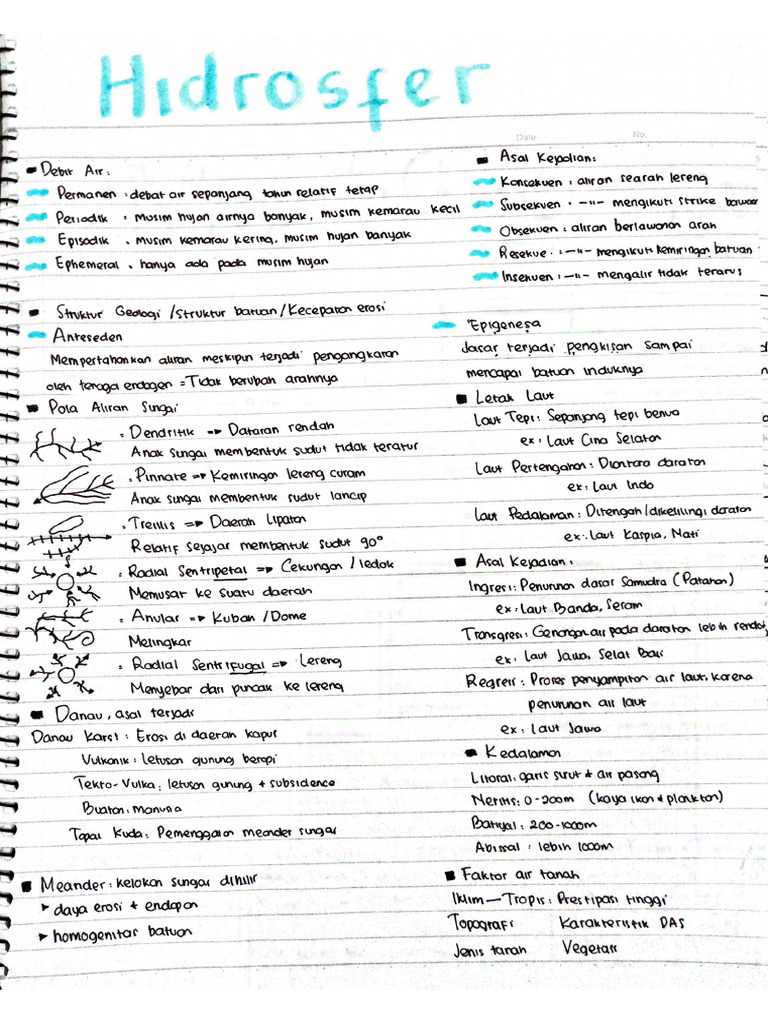 Hidrosfer
Date No.
Debit Air:
Permanen : debat air sepanjang tahun relatif tetap
Periodik : musim hujan airnya banyak, musim kemarau kecil
Episodik : musim kemarau kering, musim hujan banyak
Ephemeral : hanya ada pada musim hujan
Asal Kejadian:
Konsekuen : aliran searah lereng
Subsekuen : -"- mengikuti strike
Obsekuen : aliran berlawanan arah
Resekue : -"- mengikuti kemiringan batuan
Insekuen : -"- mengalir tidak teratus
Struktur Geologi / struktur batuan / Kecepatan erosi
Anteseden
Mempertahankan aliran meskipun terjadi pengangkaran
oleh tenaga endogen = Tidak berubah arahnya
Epigenesa
dasar terjadi pengkisan sampai
mencapai batuan induknya
Pola Aliran Sungai
: Dendritik => Dataran rendah
Anak sungai membentuk sudut tidak teratur
: Pinnate => Kemiringan lereng curam
Anak sungai membentuk sudut lancip
: Trellis => Daerah Lipatan
Relatif sejajar membentuk sudut 90°
: Radial Sentripetal => Cekungan / ledok
Memusat ke suatu daerah
: Anular => Kubah / Dome
Melingkar
: Radial Sentrifugal => Lereng
Menyebar dari puncak ke lereng
Danau, asal terjadi
Danau Karst : Erosi di daerah kapur
Vulkanik : letusan gunung berapi
Tekto-Vulka : letusan gunung + subsidence
Buatan : manusia
Tapal Kuda : Pemenggalan meander sungai
Meander : kelokan sungai dihilir
daya erosi + endapan
homogenitas batuan
Letak Laut
Laut Tepi : Sepanjang tepi benua
ex : Laut Cina Selatan
Laut Pertengahan : Diantara daratan
ex : Laut Indo
Laut Pedalaman : Ditengah/dikelilingi daratan
ex : Laut Kaspia, Mati
Asal Kejadian :
Ingresi : Penurunan dasar Samudra (Patahan)
ex : Laut Banda, Seram
Transgresi : Genangan air pada daratan lebih
ex : Laut Jawa, Selat Bali
Regresi : Proses penyampitan air laut, karena
penurunan air laut
ex : Laut Jawa
Kedalaman
Litoral : garis surut + air pasang
Neritis : 0-200m (kaya ikan & plankton)
Batiyal : 200-1000m
Abissal : lebih 1000m
Faktor air tanah
Iklim — Tropis : Prestipasi tinggi
Topografi Karakteristik DAS
Jenis tanah Vegetasi